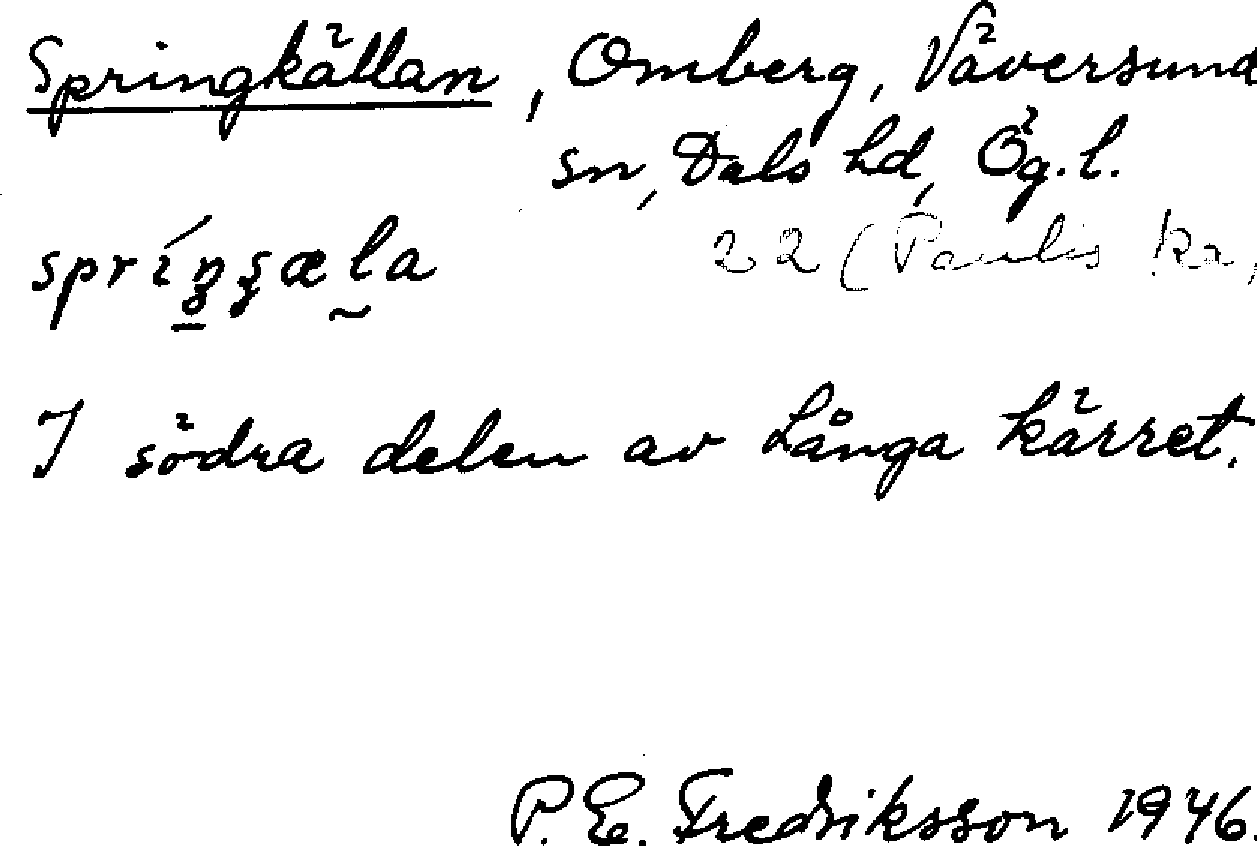 Springkällan, Omberg, Väversund
sn, Dals hd, Ög.l.
22 (Paulis kr,
I södra delen av Långa kärret.
P. E. Fredriksson 1946.